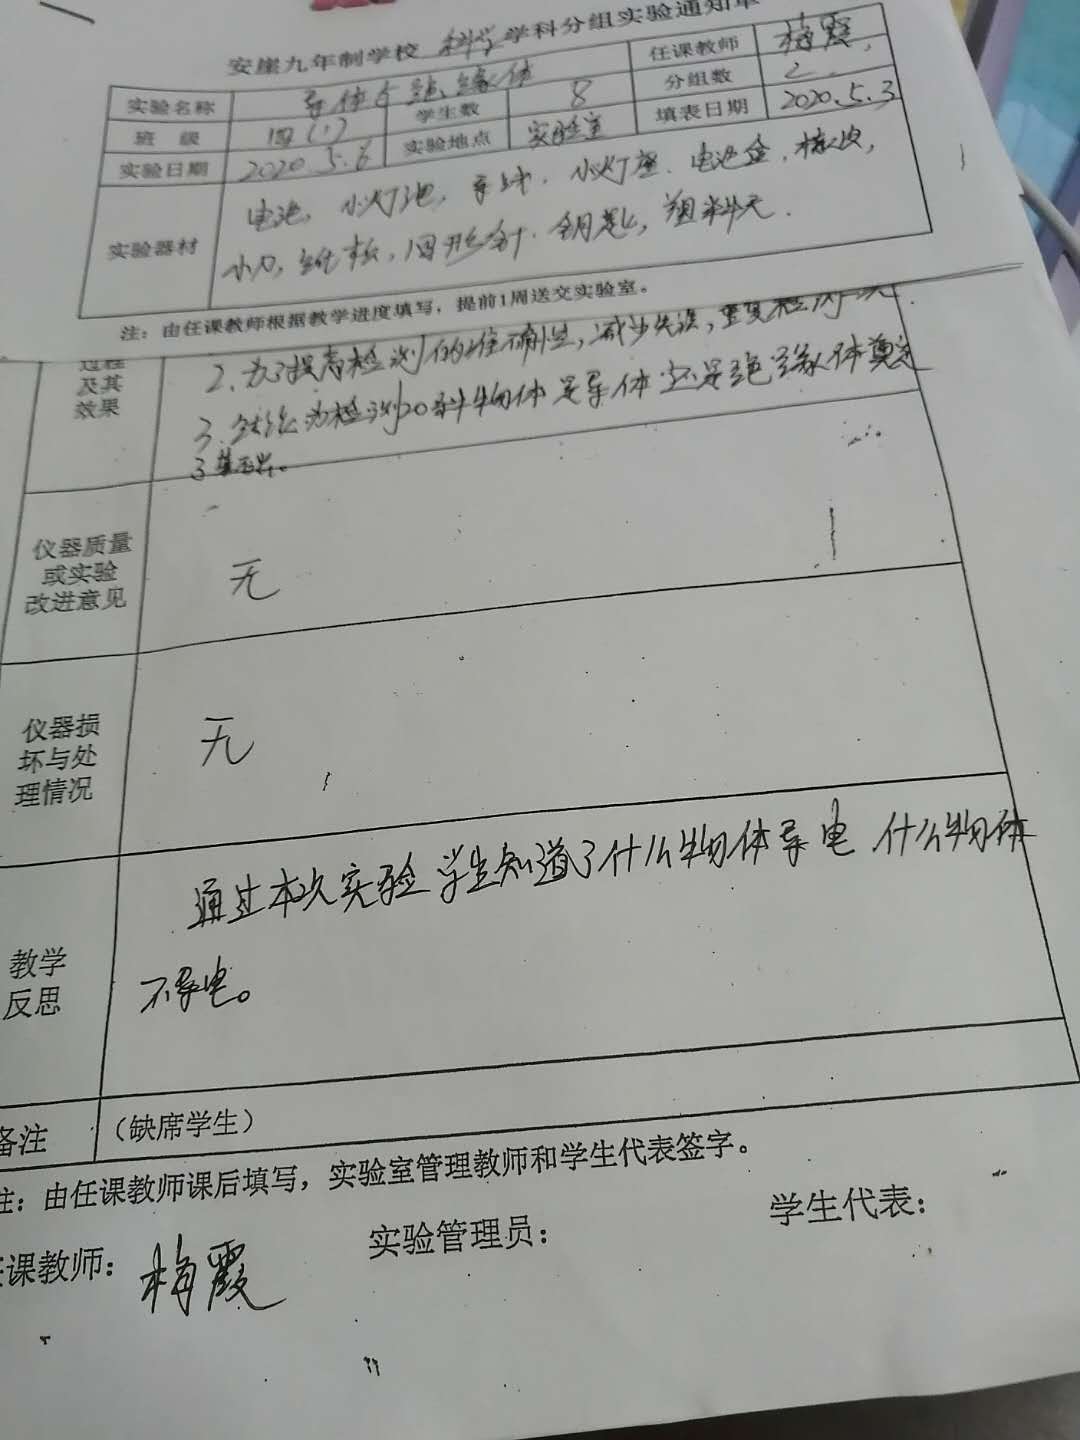 安崖九年制学校 科学 学科分组实验通知单
实验名称 导体与绝缘体 任课教师 梅霞
班 级 四(1) 学生数 8 分组数 2
实验日期 2020.5.6 实验地点 实验室 填表日期 2020.5.3
实验器材 电池, 小灯泡, 导线, 小灯座, 电池盒, 橡皮,
小刀, 纸板, 回形针, 钥匙, 塑料尺.
注：由任课教师根据教学进度填写，提前1周送交实验室。
过程
及其
效果
2、为了提高检测的准确性,减少失误,重复检测一次.
3、结论为检测20种物体是导体还是绝缘体奠定
了基础。
仪器质量
或实验
改进意见
无
仪器损
坏与处
理情况
无
教学
反思
通过本次实验学生知道了什么物体导电 什么物体
不导电。
备注 （缺席学生）
注：由任课教师课后填写，实验室管理教师和学生代表签字。
任课教师： 梅霞 实验管理员： 学生代表：